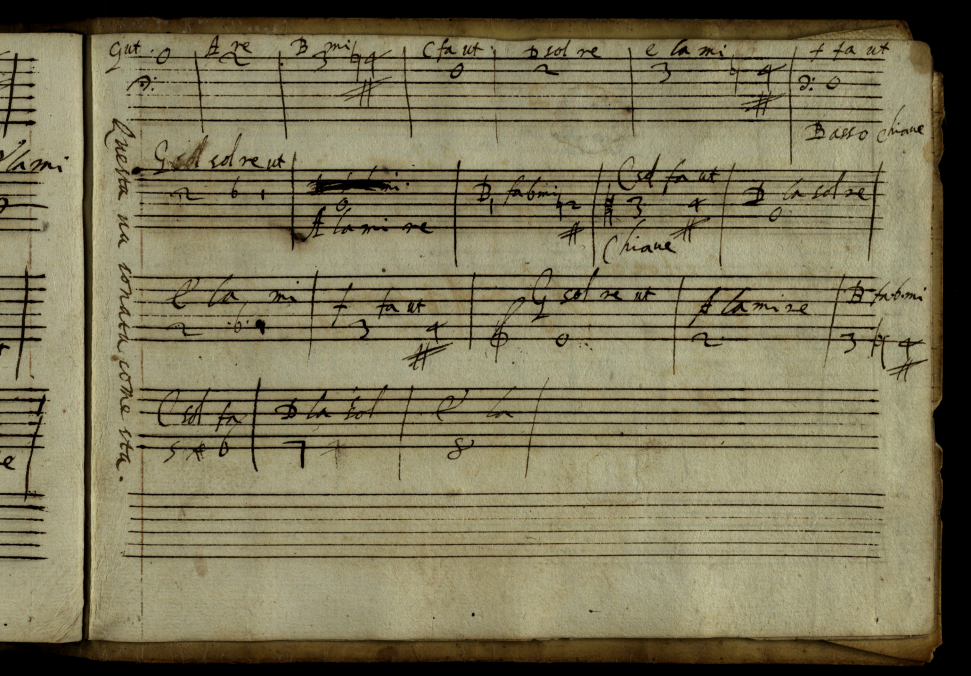 Gut. 0 A re 2 B mi 3 ♮ 4 # C fa ut 0 D sol re 2 e la mi 3 4 # f fa ut 0
Basso Chiaue
G sol re ut 2 b 1 0 A la mi re B fabmi 1 2 # C sol fa ut 3 4 # D la sol re 0
Chiaue
E la mi 2 b 1 f fa ut 3 4 # G sol re ut 0 A lamire 2 B fabmi 3 ♮ 4 #
C sol fa 5 # 6 D la sol 7 E la 8
Questa na sonata come sta.
lami